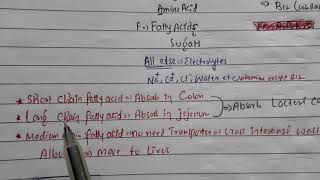 Amino Acid
F → Fatty Acids
Sugars
All else → Electrolytes
Na+, Ca+, Cl-, Water etc, Vitamins except B12
B12
* Short Chain fatty acid → Absorb in Colon
* Long Chain fatty acid → Absorb in jejenum
Absorb Lacteal
* Medium fatty acid → no need transporter → Cross intestinal wall
→ move to liver